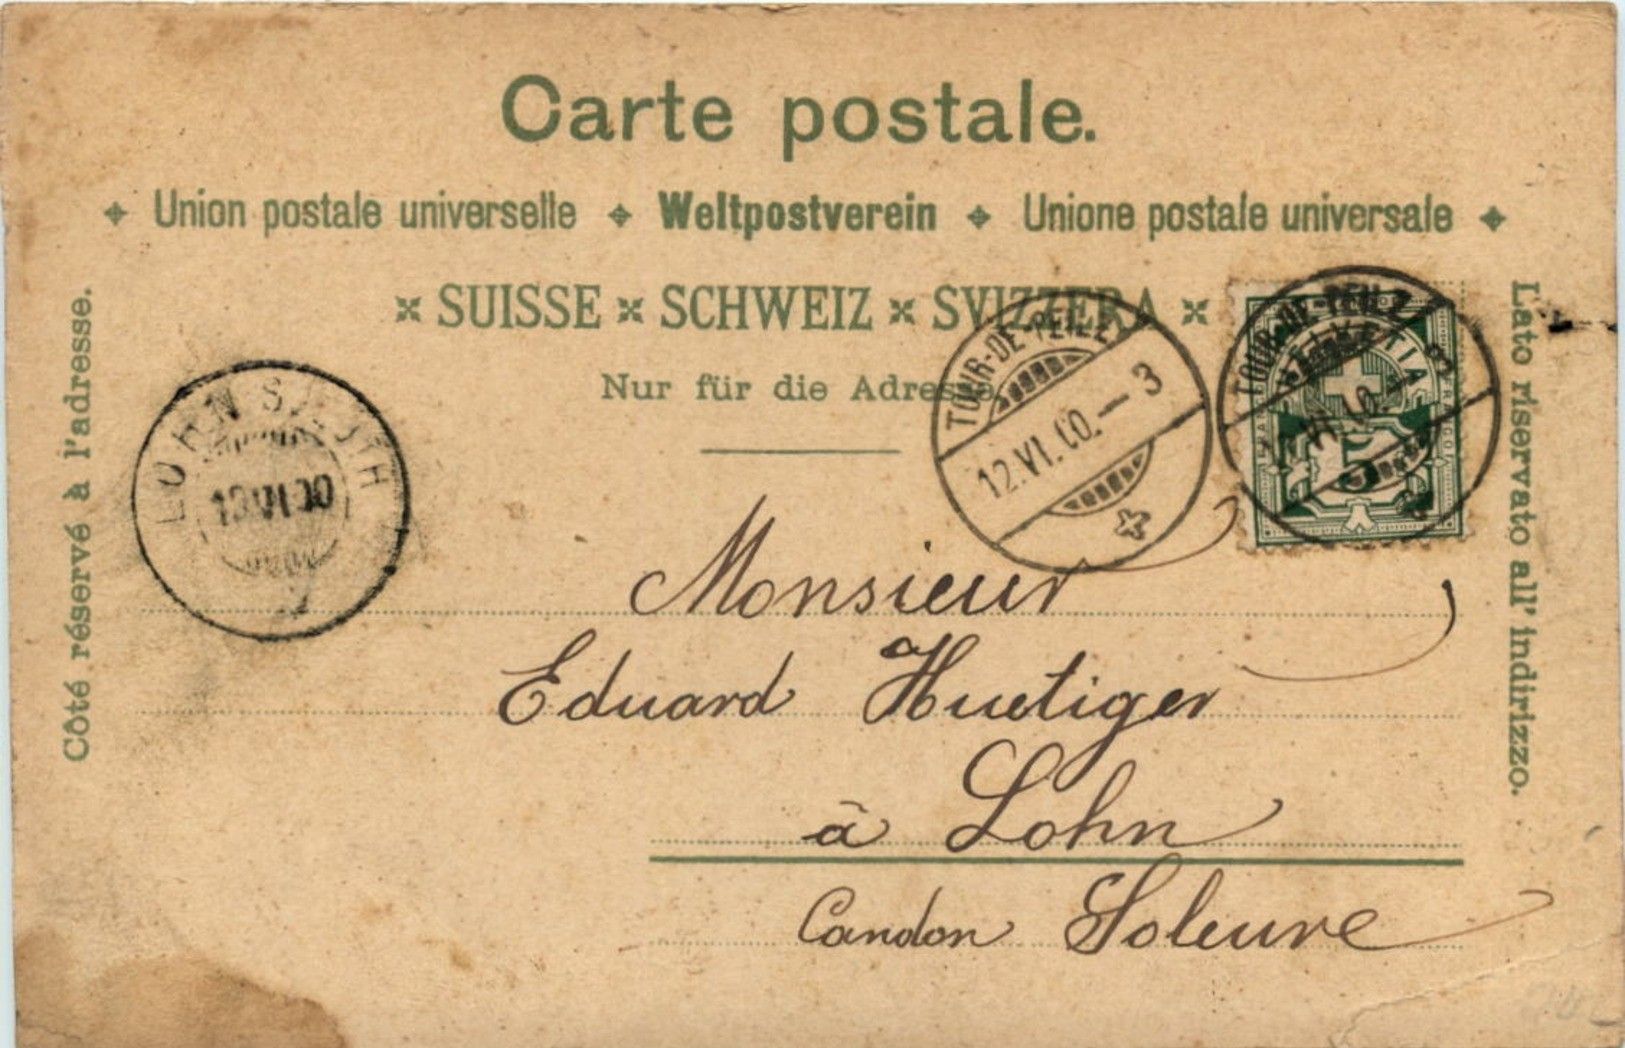 Carte postale.
Union postale universelle Weltpostverein Unione postale universale
SUISSE SCHWEIZ SVIZZERA
Nur für die Adresse.
Côté réservé à l'adresse.
Lato riservato all' indirizzo.
TOUR-DE-PEILZ
12.VI.00.–3
TOUR-DE-PEILZ
VI.00.
HELVETIA
5
LOHN
13 VI 00
Monsieur
Eduard Huetiger
à Lohn
Candon Soleure